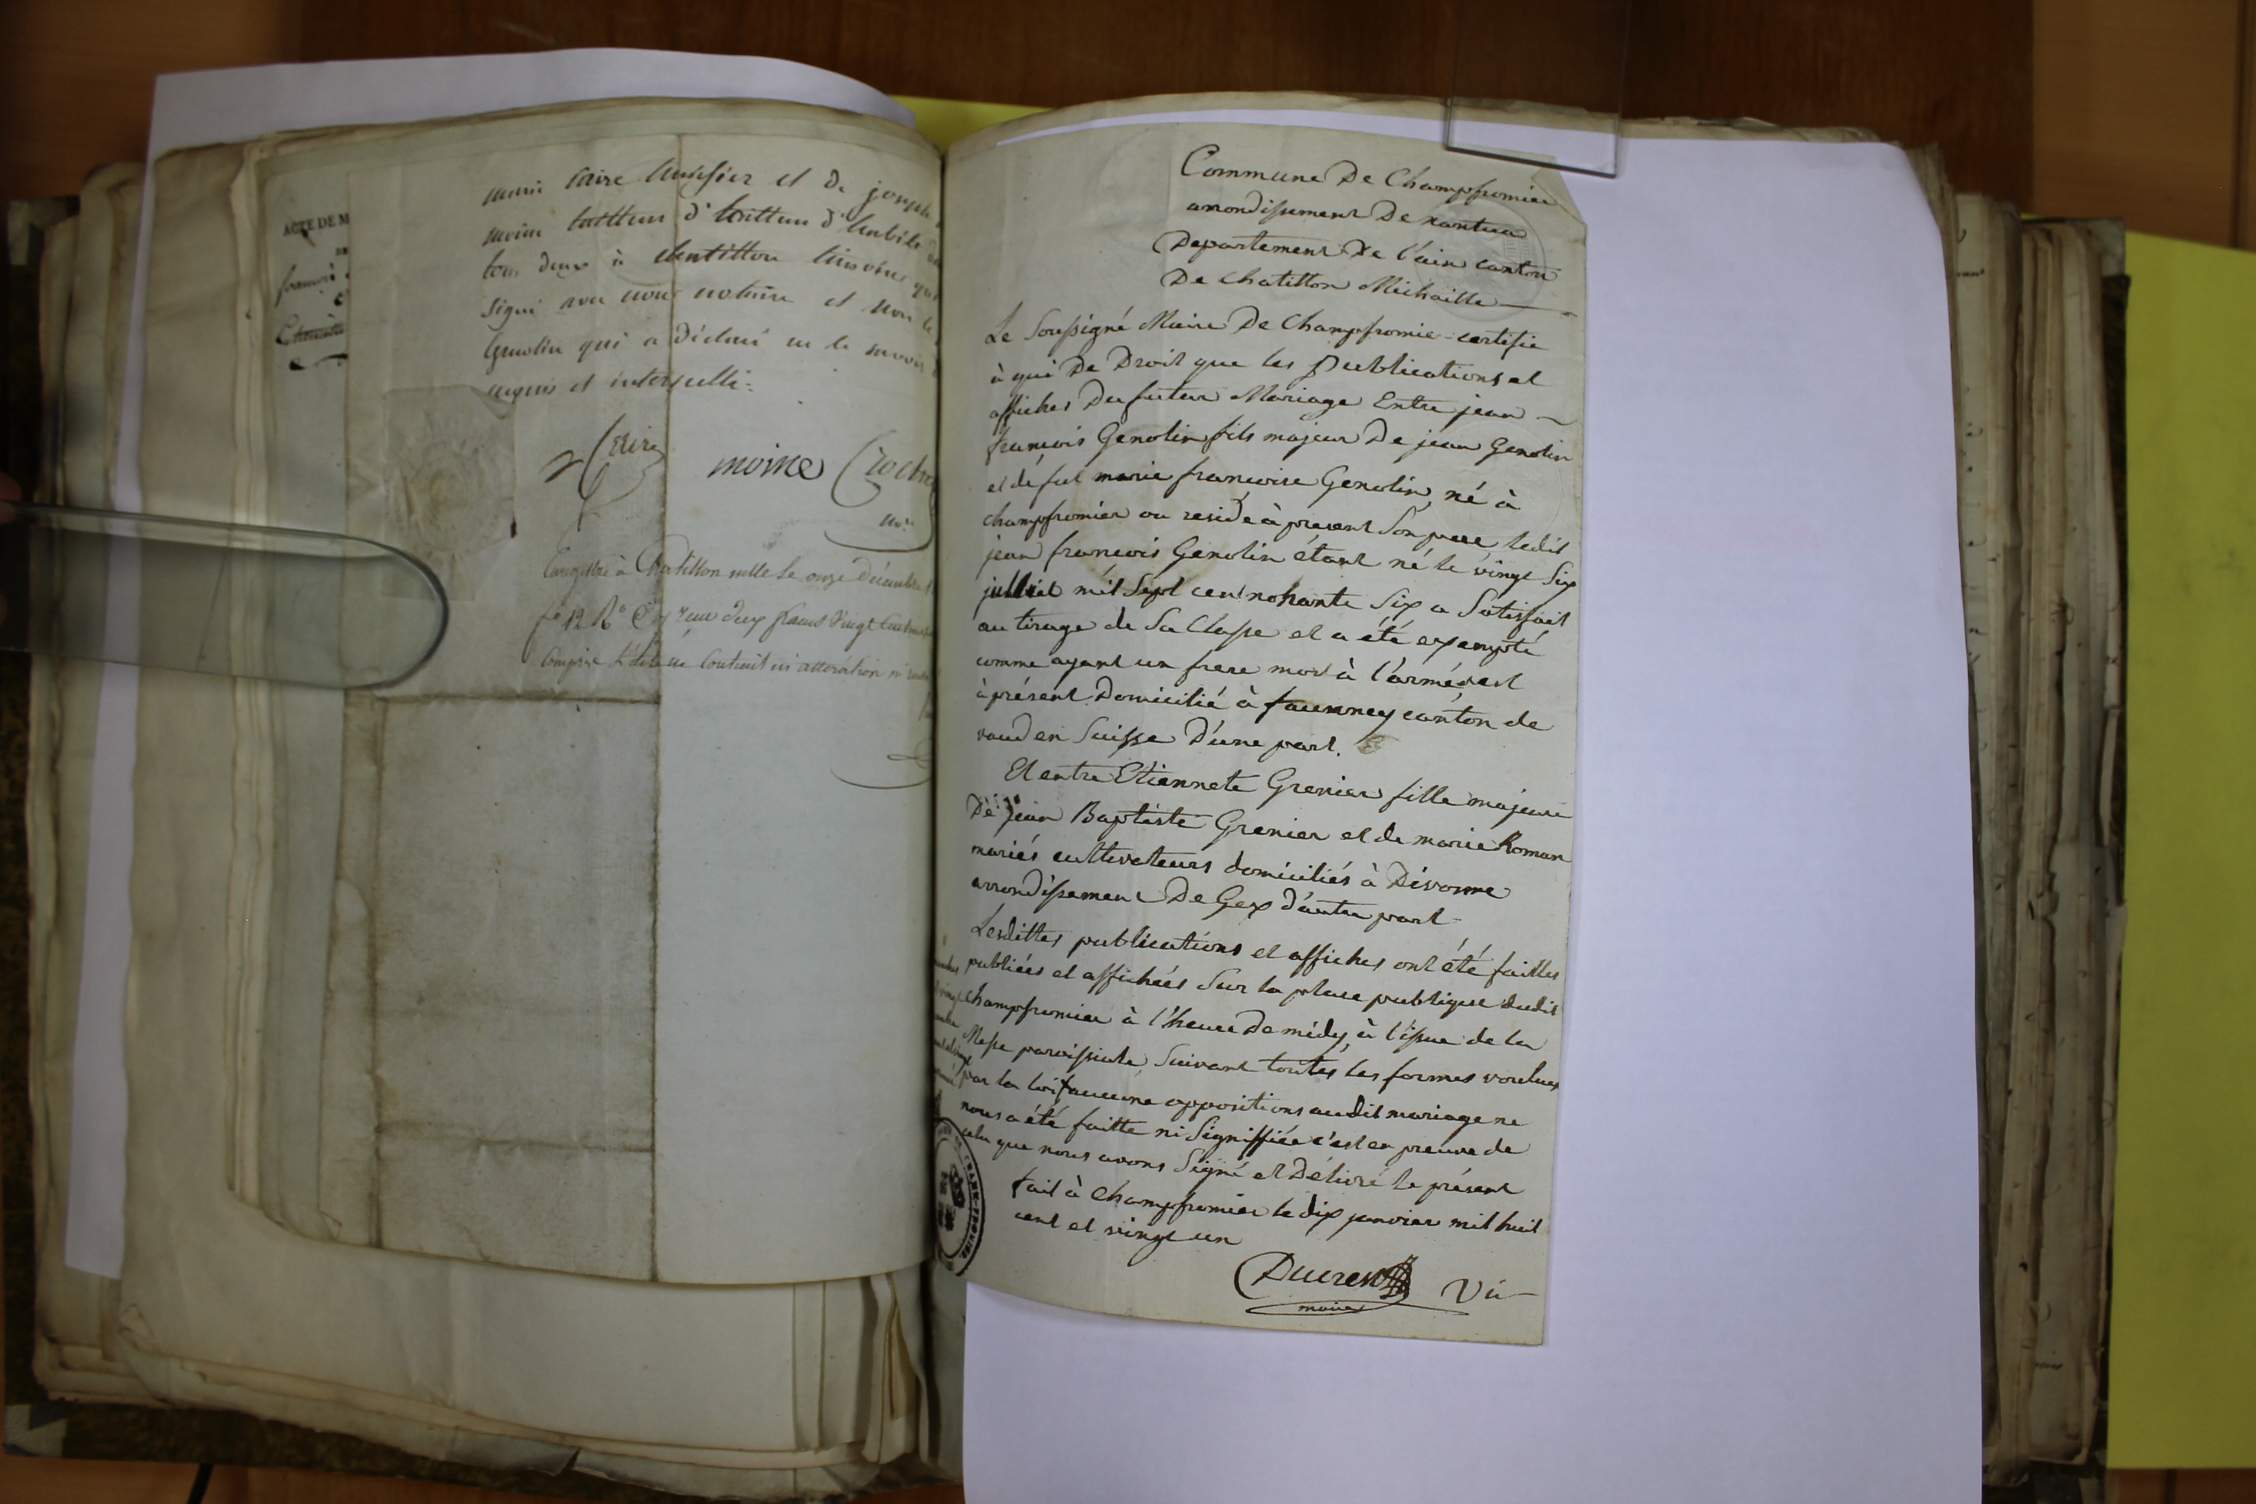 ACTE DE M
marie Caire huissier et de joseph
moine tailleur d'habits
tous deux à Chatillon témoins qui
signé avec nous notaire et non le
Genolin qui a déclaré ne le savoir
requis et interpellé
Caire moine Crochet
nore
Enregistré à Chatillon mlle le onze Décembre
fo 12 Ro reçu deux francs vingt centimes
compris contenant ni altération ni
Commune De Champfromier
arrondissement De nantua
Departement De l'ain canton
De chatillon Michaille
Le Soussigné Maire De Champfromie certifie
à qui De Droit que les publications et
affiches Du futur Mariage Entre jean
francois Genolin fils majeur De jean Genolin
et défut marie francoise Genolin, né à
champfromier ou reside à present Son pere ledit
jean francois Genolin étant né le vingt Six
julliet mil Sept cent nonante Six a Satisfait
au tirage de Sa Classe et a été exempté
comme ayant un frere mort à l'armée, est
à présent Domicilié à founney canton de
vaud en Suisse D'une part.
Et entre Etiennete Grenier fille majeure
De jean Baptiste Grenier et de marie Roman
mariés cultivateurs domiciliés à Divonne
arrondissement De Gex d'autre part
Lesdittes publications et affiches ont été faittes
publiées et affichées Sur la place publique dudit
champfromier à l'heure De midy, à l'issue de la
Messe paroissiale Suivant toutes les formes voulues
par la loi aucune oppositions audit mariage ne
nous a été faitte ni Signiffiée c'est en preuve de
cela que nous avons Signé et Délivré le présent
fait à Champfromier le dix janvier mil huit
cent et vingt un
Ducret
maire
Vu